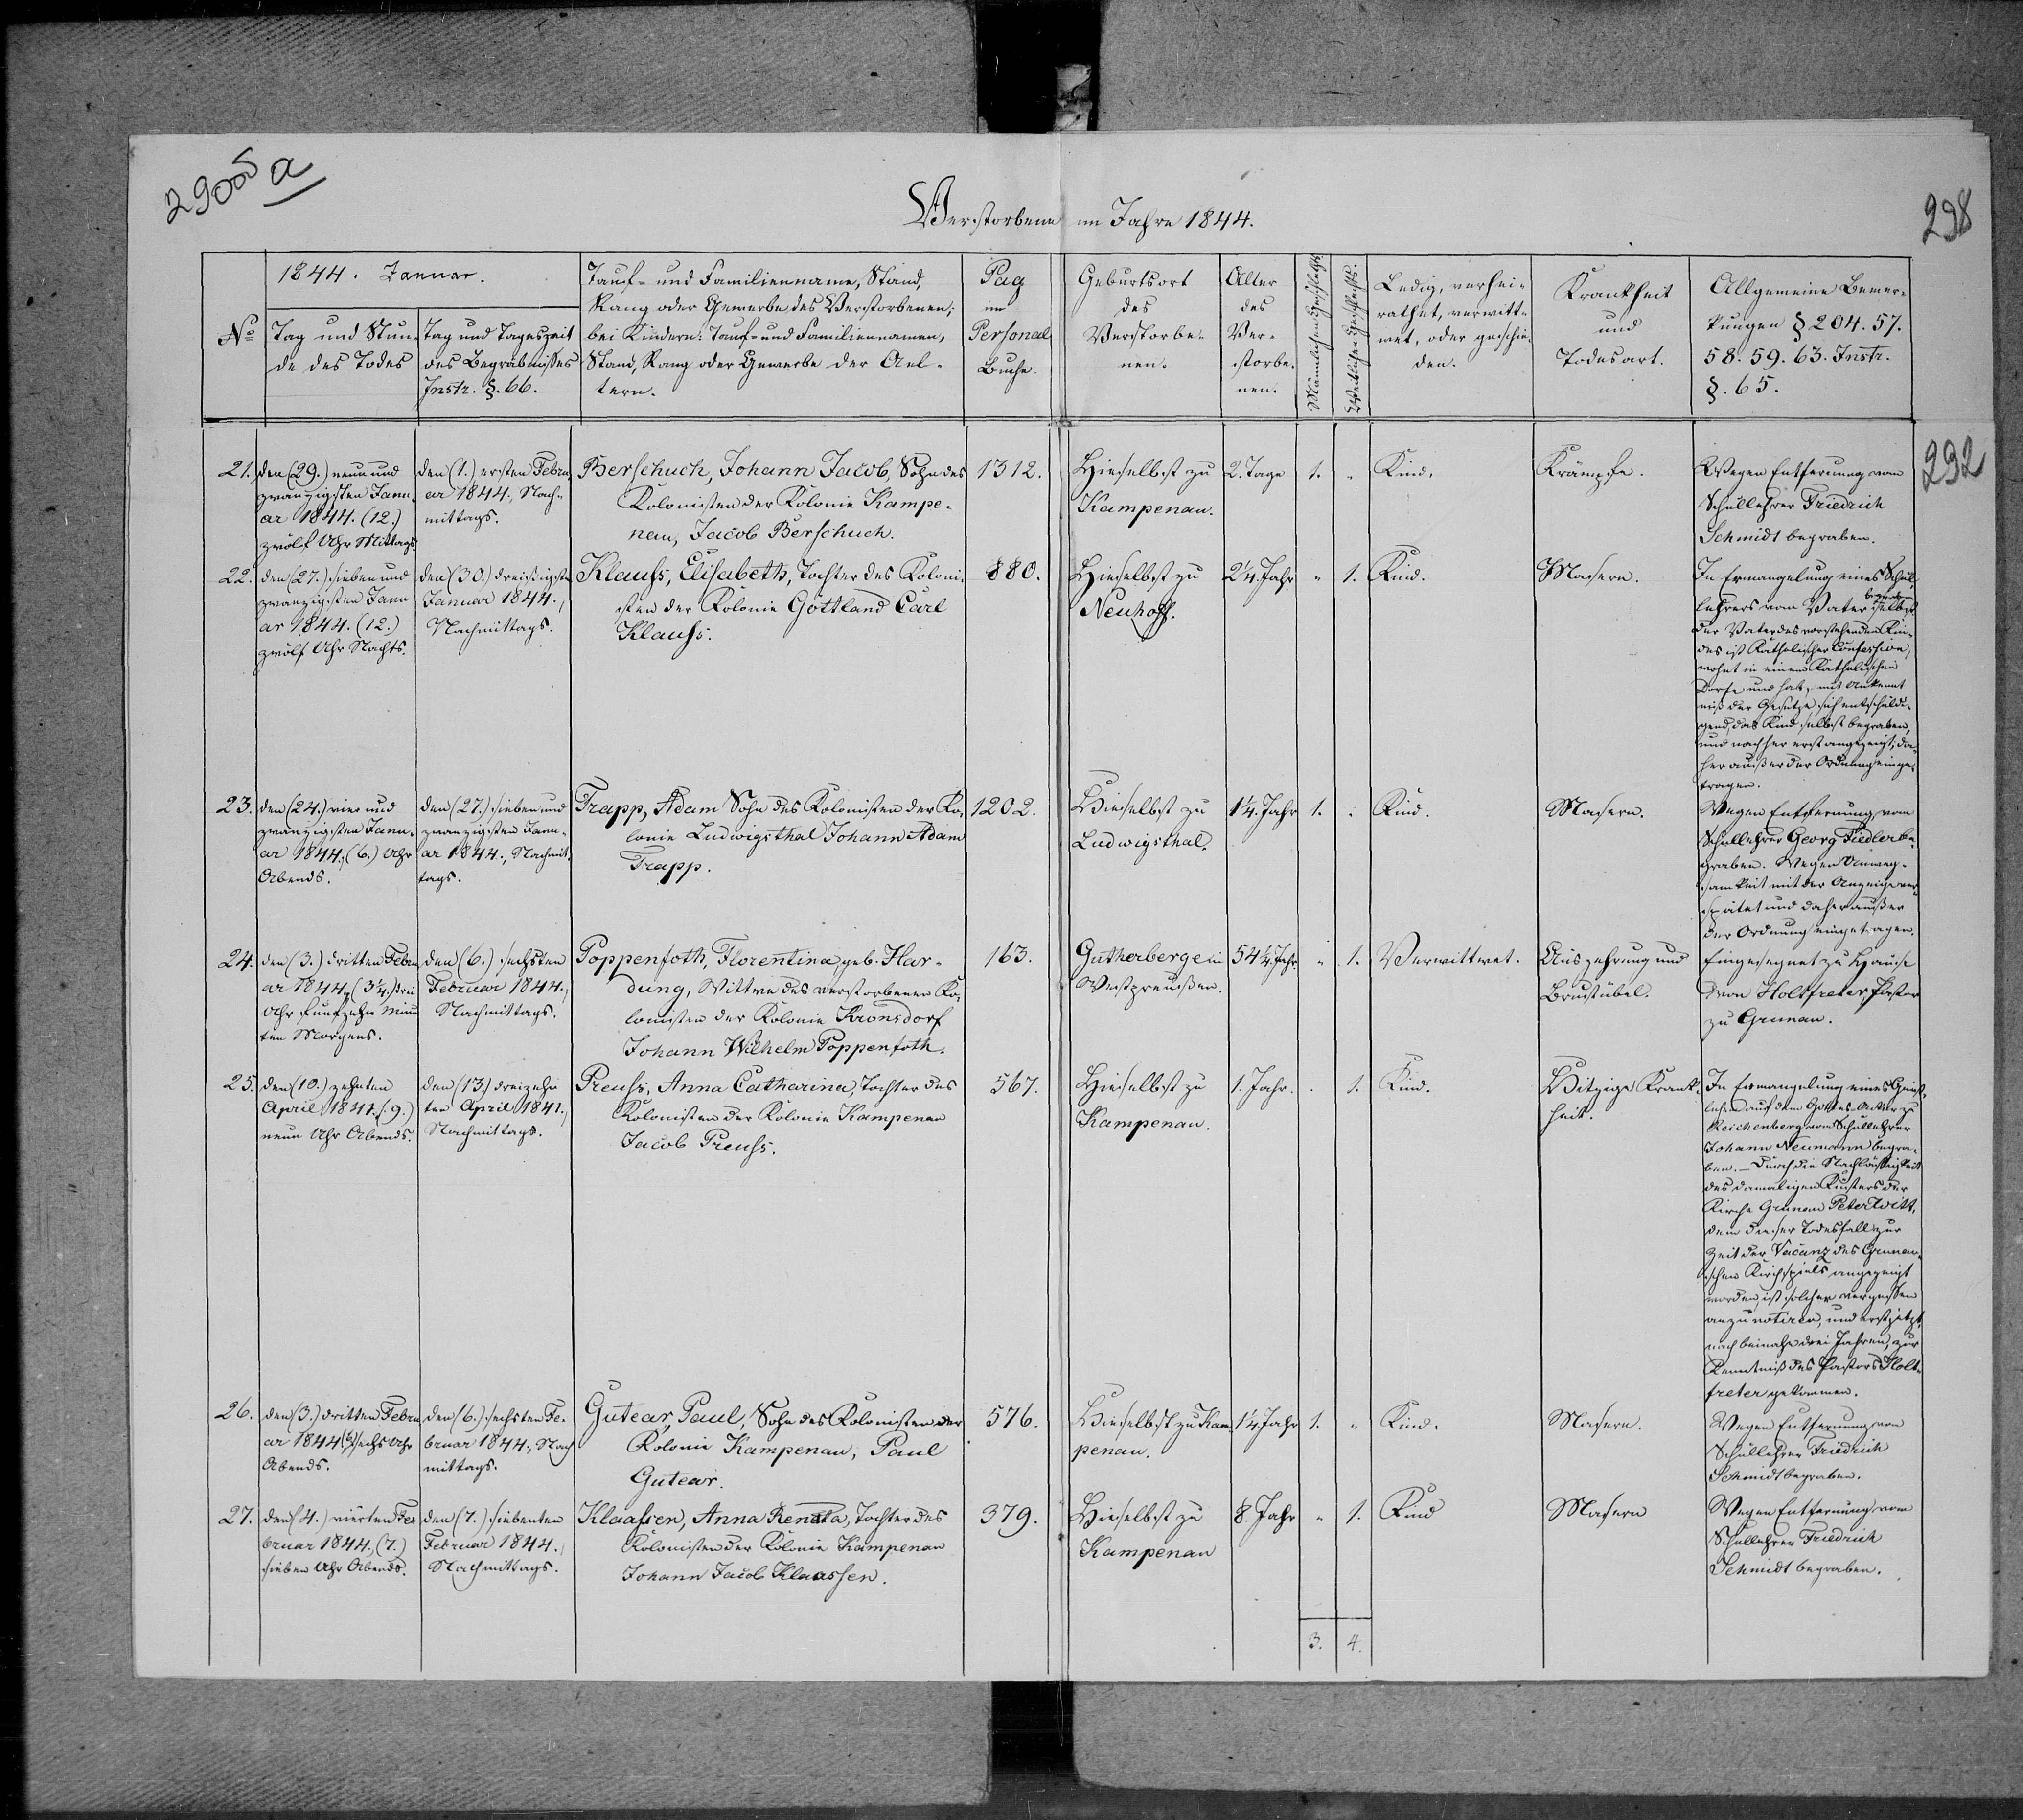 29005 a
298
Verstorbene im Jahre 1844.
1844. Januar.
No
Tag und Stun-
de des Todes
Tag und Tageszeit
des Begräbnisses
Instr. §. 66.
Tauf- und Familienname, Stand,
Rang oder Gewerbe des Verstorbenen;
bei Kindern: Tauf- und Familiennamen,
Stand, Rang oder Gewerbe der Ael-
tern.
Pag
im
Personal
Buche.
Geburtsort
des
Verstorbe-
nen.
Alter
des
Ver-
storbe-
nen.
Männlichen Geschlechts
Weiblichen Geschlechts.
Ledig, verhei-
rathet, verwitt-
wet, oder geschie-
den.
Krankheit
und
Todesart.
Allgemeine Bemer-
kungen § 204. 57.
58. 59. 63. Instr.
§. 65.
292
21.
den (29.) neun und
zwanzigsten Janu-
ar 1844. (12.)
zwölf Uhr Mittags
den (1.) ersten Febru-
ar 1844., Nach-
mittags.
Berschuch, Johann Jacob, Sohn des
Kolonisten der Kolonie Kampe-
nau, Jacob Berschuch.
1312.
Hieselbst zu
Kampenau.
2. Tage
1.
Kind.
Krämpfe.
Wegen Entfernung vom
Schullehrer Friedrich
Schmidt begraben.
22.
den (27.) sieben und
zwanzigsten Janu
ar 1844. (12.)
zwölf Uhr Nachts.
den (30.) dreißigsten
Januar 1844.,
Nachmittags.
Klauss, Elisabeth, Tochter des Koloni-
sten der Kolonie Göttland Carl
Klauss.
880.
Hieselbst zu
Neuhoff.
2¼. Jahr
"
1.
Kind.
Masern.
In Ermangelung eines Schul-
lehrers vom Vater selbst begraben
der Vater des vorstehenden Kin-
des ist Katholischer Confession,
wohnt in einem Katholischen
Dorfe und hat, mit Unkennt
niß der Gesetze sich entschuldi-
gend, das Kind selbst begraben,
und nachher erst angezeigt, da-
her außer der Ordnung einge-
tragen.
23.
den (24.) vier und
zwanzigsten Janu-
ar 1844., (6.) Uhr
Abends.
den (27.) sieben und
zwanzigsten Janu-
ar 1844., Nachmit-
tags.
Trapp, Adam Sohn des Kolonisten der Ko-
lonie Ludwigsthal Johann Adam
Trapp.
1202.
Hieselbst zu
Ludwigsthal.
1¼. Jahr
1.
Kind.
Masern.
Wegen Entfernung vom
Schullehrer Georg Fiedler be-
graben. Wegen Unweg-
samkeit mit der Anzeige ver-
spätet und daher außer
der Ordnung eingetragen.
24.
den (3.) dritten Febru
ar 1844., (3¼.) drei
Uhr funfzehn Minu
ten Morgens.
den (6.) sechsten
Februar 1844.,
Nachmittags.
Poppenfoth, Florentina, geb. Har-
dung, Wittwe des verstorbenen Ko-
lonisten der Kolonie Kronsdorf
Johann Wilhelm Poppenfoth.
163.
Gutherberge in
Westpreußen.
54¼. Jahr
"
1.
Verwittwet.
Auszehrung und
Brustübel.
Eingesegnet zu Hause
von Holtfreter, Pastor
zu Grunau.
25.
den (10.) zehnten
April 1841. (9.)
neun Uhr Abends.
den (13.) dreizehn
ten April 1841.,
Nachmittags.
Preuss, Anna Catharina, Tochter des
Kolonisten der Kolonie Kampenau
Jacob Preuss.
567.
Hieselbst zu
Kampenau.
1. Jahr.
1.
Kind.
Hitzige Krank-
heit.
In Ermangelung eines Geist-
lichen auf dem Gottes-Acker zu
Reichenberg vom Schullehrer
Johann Neumann begra-
ben. – Durch die Nachläßigkeit
des damaligen Küsters der
Kirche Grunau Peter Witt,
dem dieser Todesfall zur
Zeit der Vacanz des Grunau-
schen Kirchspiels angezeigt
worden, ist solcher vergessen
anzu notiren, und erst jetzt,
nach beinahe drei Jahren, zur
Kenntniß des Pastors Holt-
freter gekommen.
26.
den (3.) dritten Febru
ar 1844 (6.) sechs Uhr
Abends.
den (6.) sechsten Fe-
bruar 1844., Nach
mittags.
Gutear, Paul, Sohn des Kolonisten der
Kolonie Kampenau, Paul
Gutear.
576.
Hieselbst zu Kam-
penau.
1¼. Jahr
1.
"
Kind.
Masern.
Wegen Entfernung vom
Schullehrer Friedrich
Schmidt begraben.
27.
den (4.) vierten Fe-
bruar 1844. (7.)
sieben Uhr Abends.
den (7.) siebenten
Februar 1844.,
Nachmittags.
Klaassen, Anna Renata, Tochter des
Kolonisten der Kolonie Kampenau
Johann Jacob Klaassen.
379.
Hieselbst zu
Kampenau
8. Jahr
"
1.
Kind
Masern
Wegen Entfernung vom
Schullehrer Friedrich
Schmidt begraben.
3.
4.